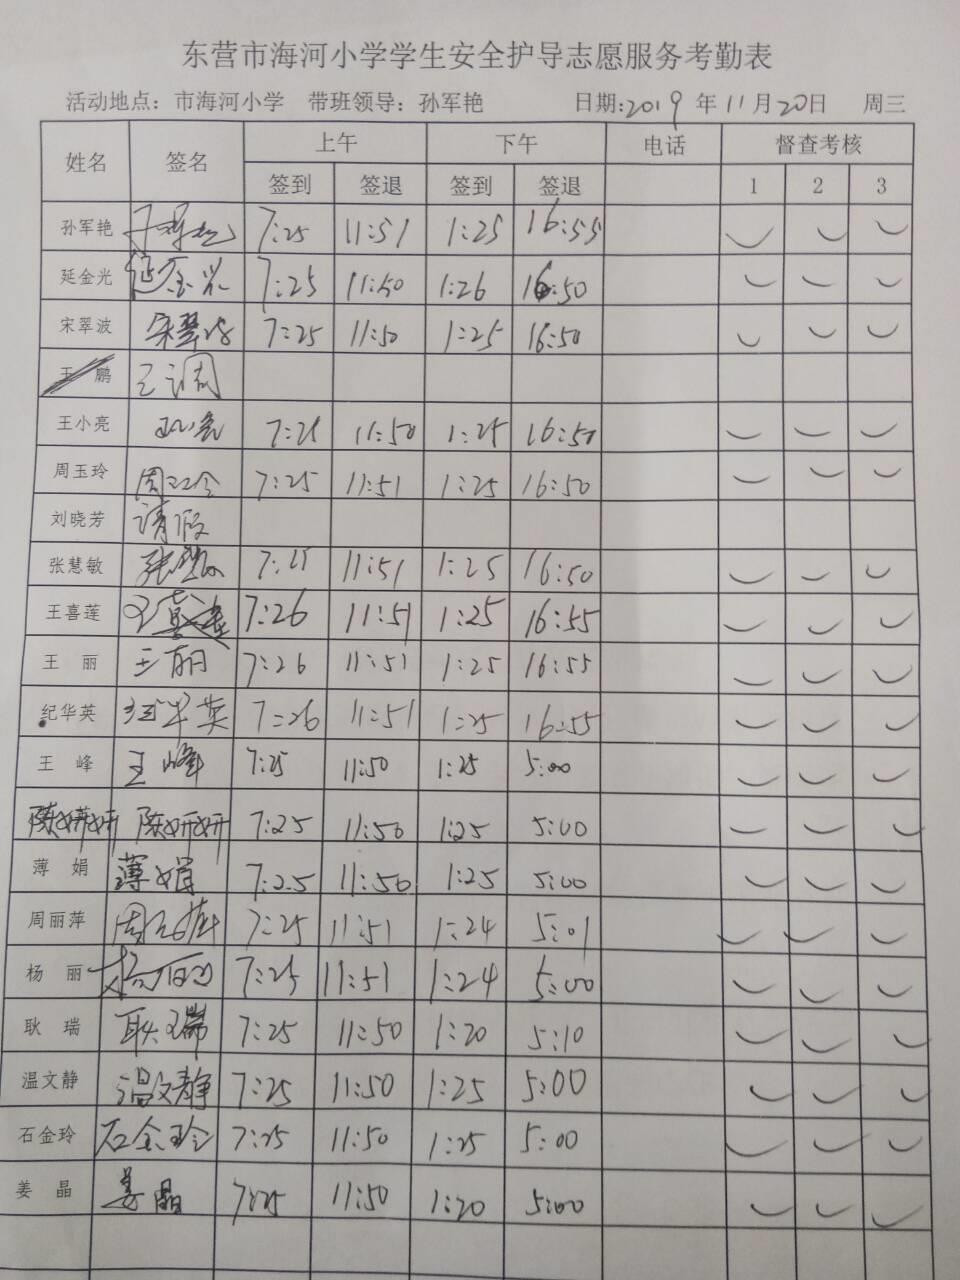 东营市海河小学学生安全护导志愿服务考勤表
活动地点：市海河小学 带班领导：孙军艳 日期:2019年11月20日 周三
姓名 签名 上午 下午 电话 督查考核
签到 签退 签到 签退 1 2 3
孙军艳 孙军艳 7:25 11:51 1:25 16:55
延金光 延金光 7:25 11:50 1:26 16:50
宋翠波 宋翠波 7:25 11:50 1:25 16:50
王鹏 王调
王小亮 王小亮 7:25 11:50 1:25 16:50
周玉玲 周玉令 7:25 11:51 1:25 16:50
刘晓芳 请假
张慧敏 张慧敏 7:25 11:51 1:25 16:50
王喜莲 王喜莲 7:26 11:51 1:25 16:55
王丽 王丽 7:26 11:51 1:25 16:55
纪华英 纪华英 7:26 11:51 1:25 16:55
王峰 王峰 7:25 11:50 1:25 5:00
陈妍妍 陈妍妍 7:25 11:50 1:25 5:00
薄娟 薄娟 7:25 11:50 1:25 5:00
周丽萍 周丽萍 7:25 11:51 1:24 5:01
杨丽 杨丽 7:25 11:51 1:24 5:00
耿瑞 耿瑞 7:25 11:50 1:20 5:10
温文静 温文静 7:25 11:50 1:25 5:00
石金玲 石金玲 7:25 11:50 1:25 5:00
姜晶 姜晶 7:25 11:50 1:20 5:00